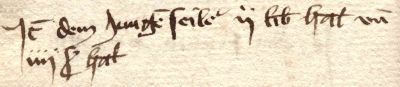 Jt̄ dem Jungē seile' ij lib hal vn̄
iiij ß hal